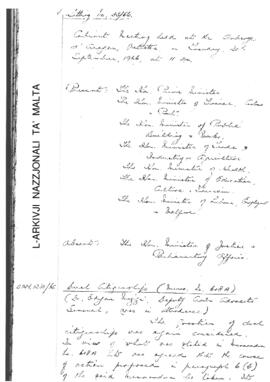 Cabinet Meeting held at the Auberge
d'Aragon, Valletta on Tuesday 20th
September, 1966, at 11 am
Present: The Hon. Prime Minister
The Hon. Minister of Finance, Customs
& Port
The Hon. Minister of Public
Building & Works
The Hon. Minister of Trade
Industry & Agriculture
The Hon. Minister of Health
The Hon. Minister of Education,
Culture & Tourism
The Hon. Minister of Labour, Employment
& Welfare
Absent: The Hon. Minister of Justice &
Parliamentary Affairs
L-ARKIVJI NAZZJONALI TA MALTA
Dual Citizenship (Memo. No.
(Dr. Edgar Mizzi, Deputy Crown Advocate
General, was in attendance)
The question of dual
citizenship was again considered.
In view of what was stated in memorandum
it was agreed that the course
of action proposed in paragraph 6
of the said memorandum be taken